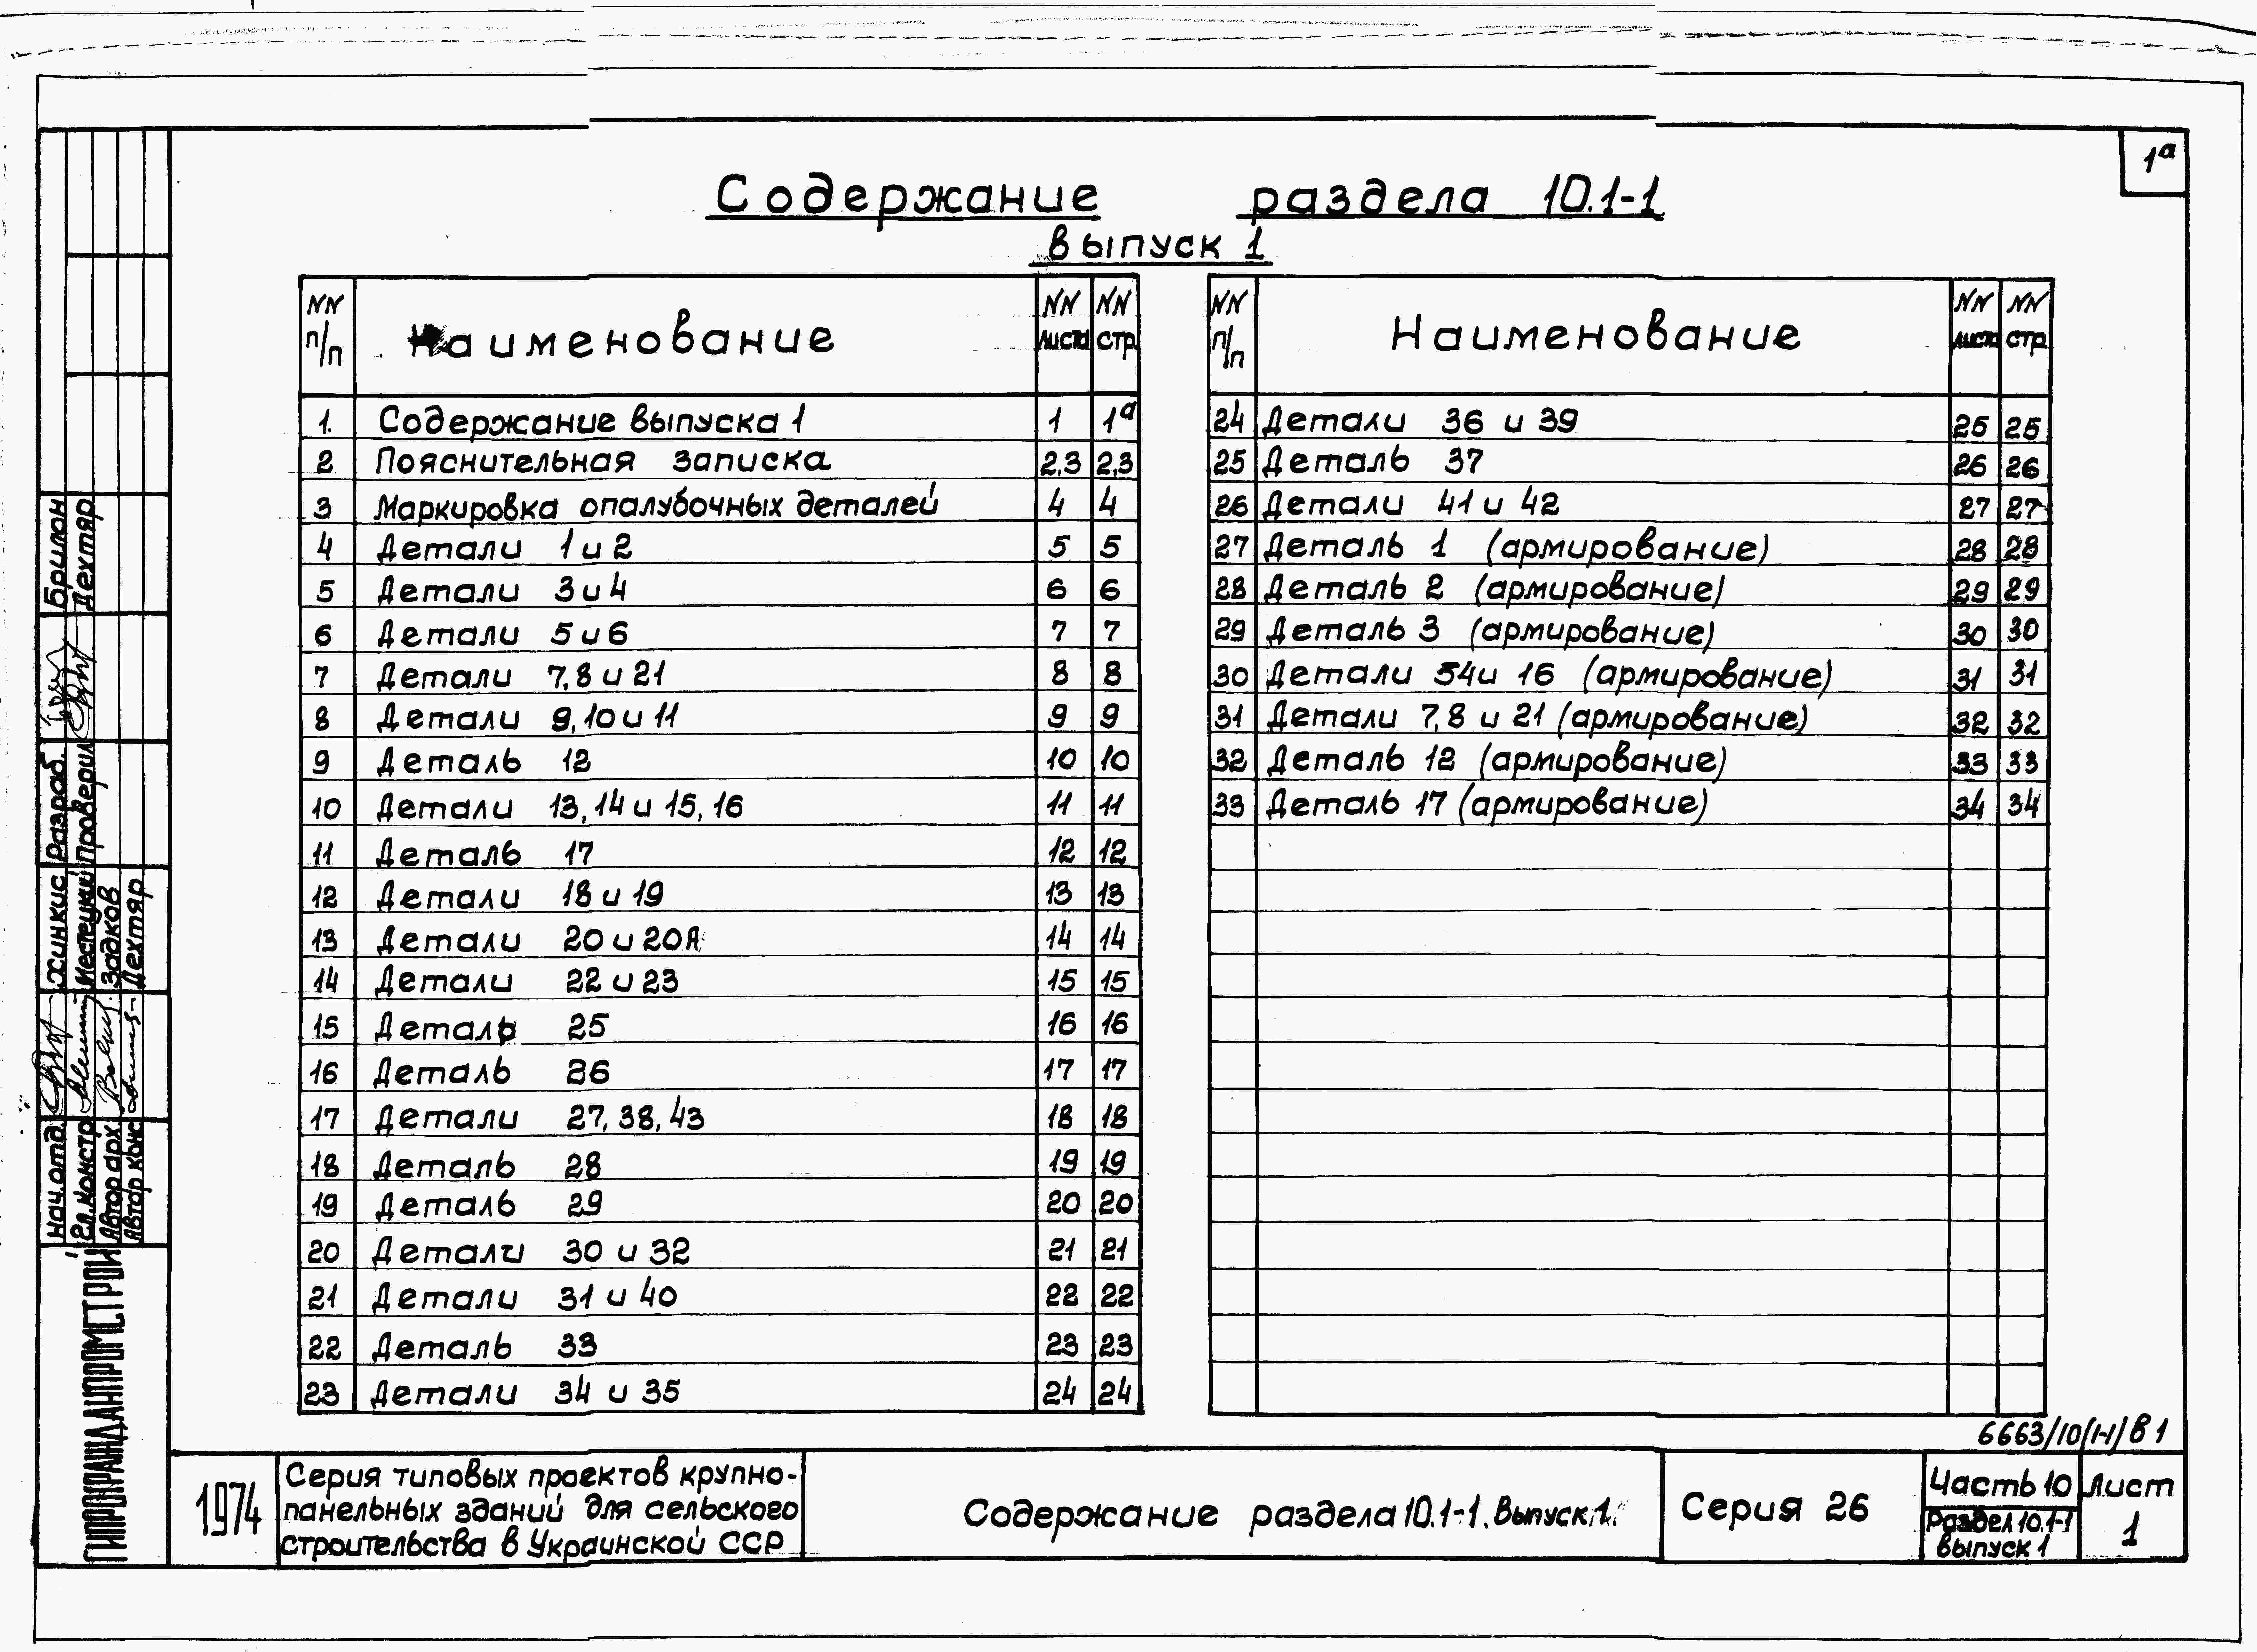 1а
Содержание раздела 10.1-1
выпуск 1
NN п/п Наименование NN листа NN стр
1. Содержание выпуска 1 1 1а
2 Пояснительная записка 2,3 2,3
3 Маркировка опалубочных деталей 4 4
4 Детали 1 и 2 5 5
5 Детали 3 и 4 6 6
6 Детали 5 и 6 7 7
7 Детали 7, 8 и 21 8 8
8 Детали 9, 10 и 11 9 9
9 Деталь 12 10 10
10 Детали 13, 14 и 15, 16 11 11
11 Деталь 17 12 12
12 Детали 18 и 19 13 13
13 Детали 20 и 20А 14 14
14 Детали 22 и 23 15 15
15 Деталь 25 16 16
16 Деталь 26 17 17
17 Детали 27, 38, 43 18 18
18 Деталь 28 19 19
19 Деталь 29 20 20
20 Детали 30 и 32 21 21
21 Детали 31 и 40 22 22
22 Деталь 33 23 23
23 Детали 34 и 35 24 24
NN п/п Наименование NN листа NN стр
24 Детали 36 и 39 25 25
25 Деталь 37 26 26
26 Детали 41 и 42 27 27
27 Деталь 1 (армирование) 28 28
28 Деталь 2 (армирование) 29 29
29 Деталь 3 (армирование) 30 30
30 Детали 54 и 16 (армирование) 31 31
31 Детали 7, 8 и 21 (армирование) 32 32
32 Деталь 12 (армирование) 33 33
33 Деталь 17 (армирование) 34 34
6663/10(1-1)в 1
ГИПРОГРАЖДАНПРОМСТРОЙ
нач. отд. Хинкис Разраб. Брилон
Гл. констр Местецкий Проверил Дехтяр
Автор арх Задков
Автор конс Дехтяр
1974
Серия типовых проектов крупно-
панельных зданий для сельского
строительства в Украинской ССР
Содержание раздела 10.1-1. Выпуск 1.
Серия 26
Часть 10
Раздел 10.1-1
выпуск 1
Лист
1